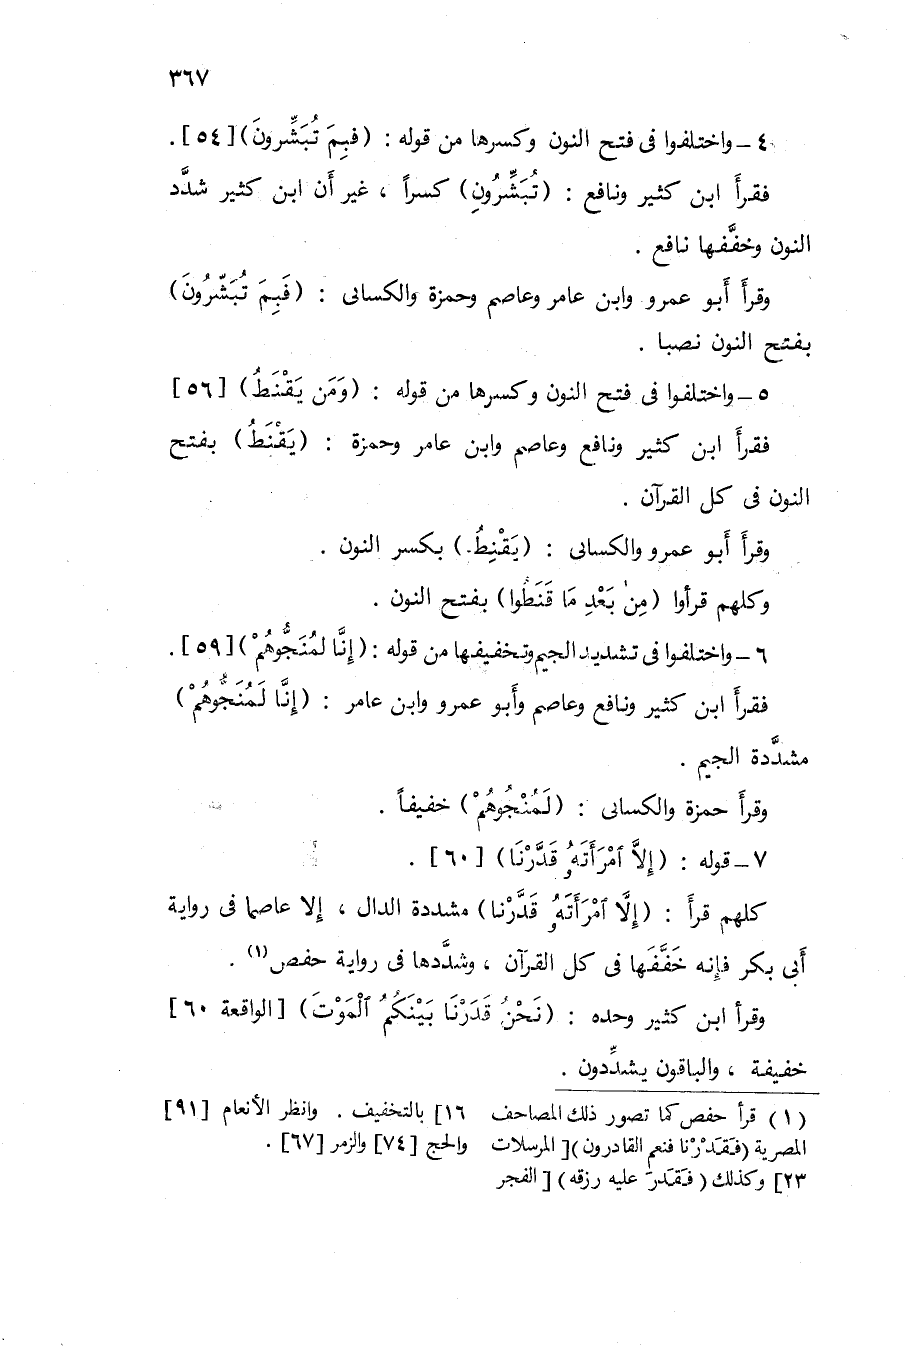 ٣٦٧
٤ – واختلفوا فى فتح النون وكسرها من قوله : (فَبِمَ تُبَشِّرونَ)[٥٤].
فقرأَ ابن كثير ونافع : (تُبَشِّرُونِ) كسراً ، غير أَن ابن كثير شدَّد
النون وخفَّفها نافع .
وقرأَ أَبو عمرو وابن عامر وعاصم وحمزة والكسائى : (فَبِمَ تُبَشِّرُونَ)
بفتح النون نصبا .
٥ – واختلفوا فى فتح النون وكسرها من قوله : (وَمَن يَقْنَطُ) [٥٦]
فقرأَ ابن كثير ونافع وعاصم وابن عامر وحمزة : (يَقْنَطُ) بفتح
النون فى كل القرآن .
وقرأَ أَبو عمرو والكسائى : (يَقْنِطُ) بكسر النون .
وكلهم قرأوا (مِنْ بَعْدِ مَا قَنَطُوا) بفتح النون .
٦ – واختلفوا فى تشديد الجيم وتخفيفها من قوله : (إِنَّا لمُنَجُّوهُمْ)[٥٩].
فقرأَ ابن كثير ونافع وعاصم وأَبو عمرو وابن عامر : (إِنَّا لَمُنَجُّوهُمْ)
مشدَّدة الجيم .
وقرأَ حمزة والكسائى : (لَمُنْجُوهُمْ) خفيفاً .
٧ – قوله : (إِلَّا ٱمْرَأَتَهُۥ قَدَّرْنَا) [٦٠] .
كلهم قرأَ : (إِلَّا ٱمْرَأَتَهُۥ قَدَّرْنا) مشددة الدال ، إلا عاصما فى رواية
أَبى بكر فإنه خَفَّفَها فى كل القرآن ، وشدَّدها فى رواية حفص(١) .
وقرأ ابن كثير وحده : (نَحْنُ قَدَرْنَا بَيْنَكُمُ ٱلْمَوْتَ) [الواقعة ٦٠]
خفيفة ، والباقون يشدِّدون .
(١) قرأ حفص كما تصور ذلك المصاحف
المصرية (فَقَدَرْنا فنعم القادرون)[ المرسلات
٢٣] وكذلك ( فَقَدَرَ عليه رزقه) [ الفجر
١٦] بالتخفيف . وانظر الأنعام [٩١]
والحج [٧٤] والزمر [٦٧] .